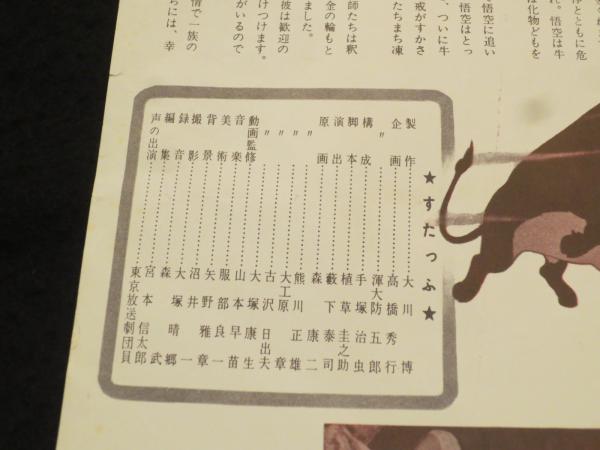 浄とともに危
れ。悟空は牛
は化物どもを
悟空に追い
悟空はとっ
、ついに牛
戒がすかさ
たちまち凍
師たちは釈
金の輪もと
ました。
彼は歓迎の
けつけます。
がいるので
情で一族の
ちには、幸
★すたっふ★
製作……大川博
企画……高橋秀行
〃……渾大防五郎
構成……手塚治虫
脚本……植草圭之助
演出……藪下泰司
原画……森康二
〃……熊川正雄
〃……大工原章
〃……古沢日出夫
〃……大塚康生
動画監修……山本早苗
音楽……服部良一
美術……矢野雅章
背景……沼井一
撮影……大塚晴郷
録音……森武
編集……宮本信太郎
声の出演……東京放送劇団員